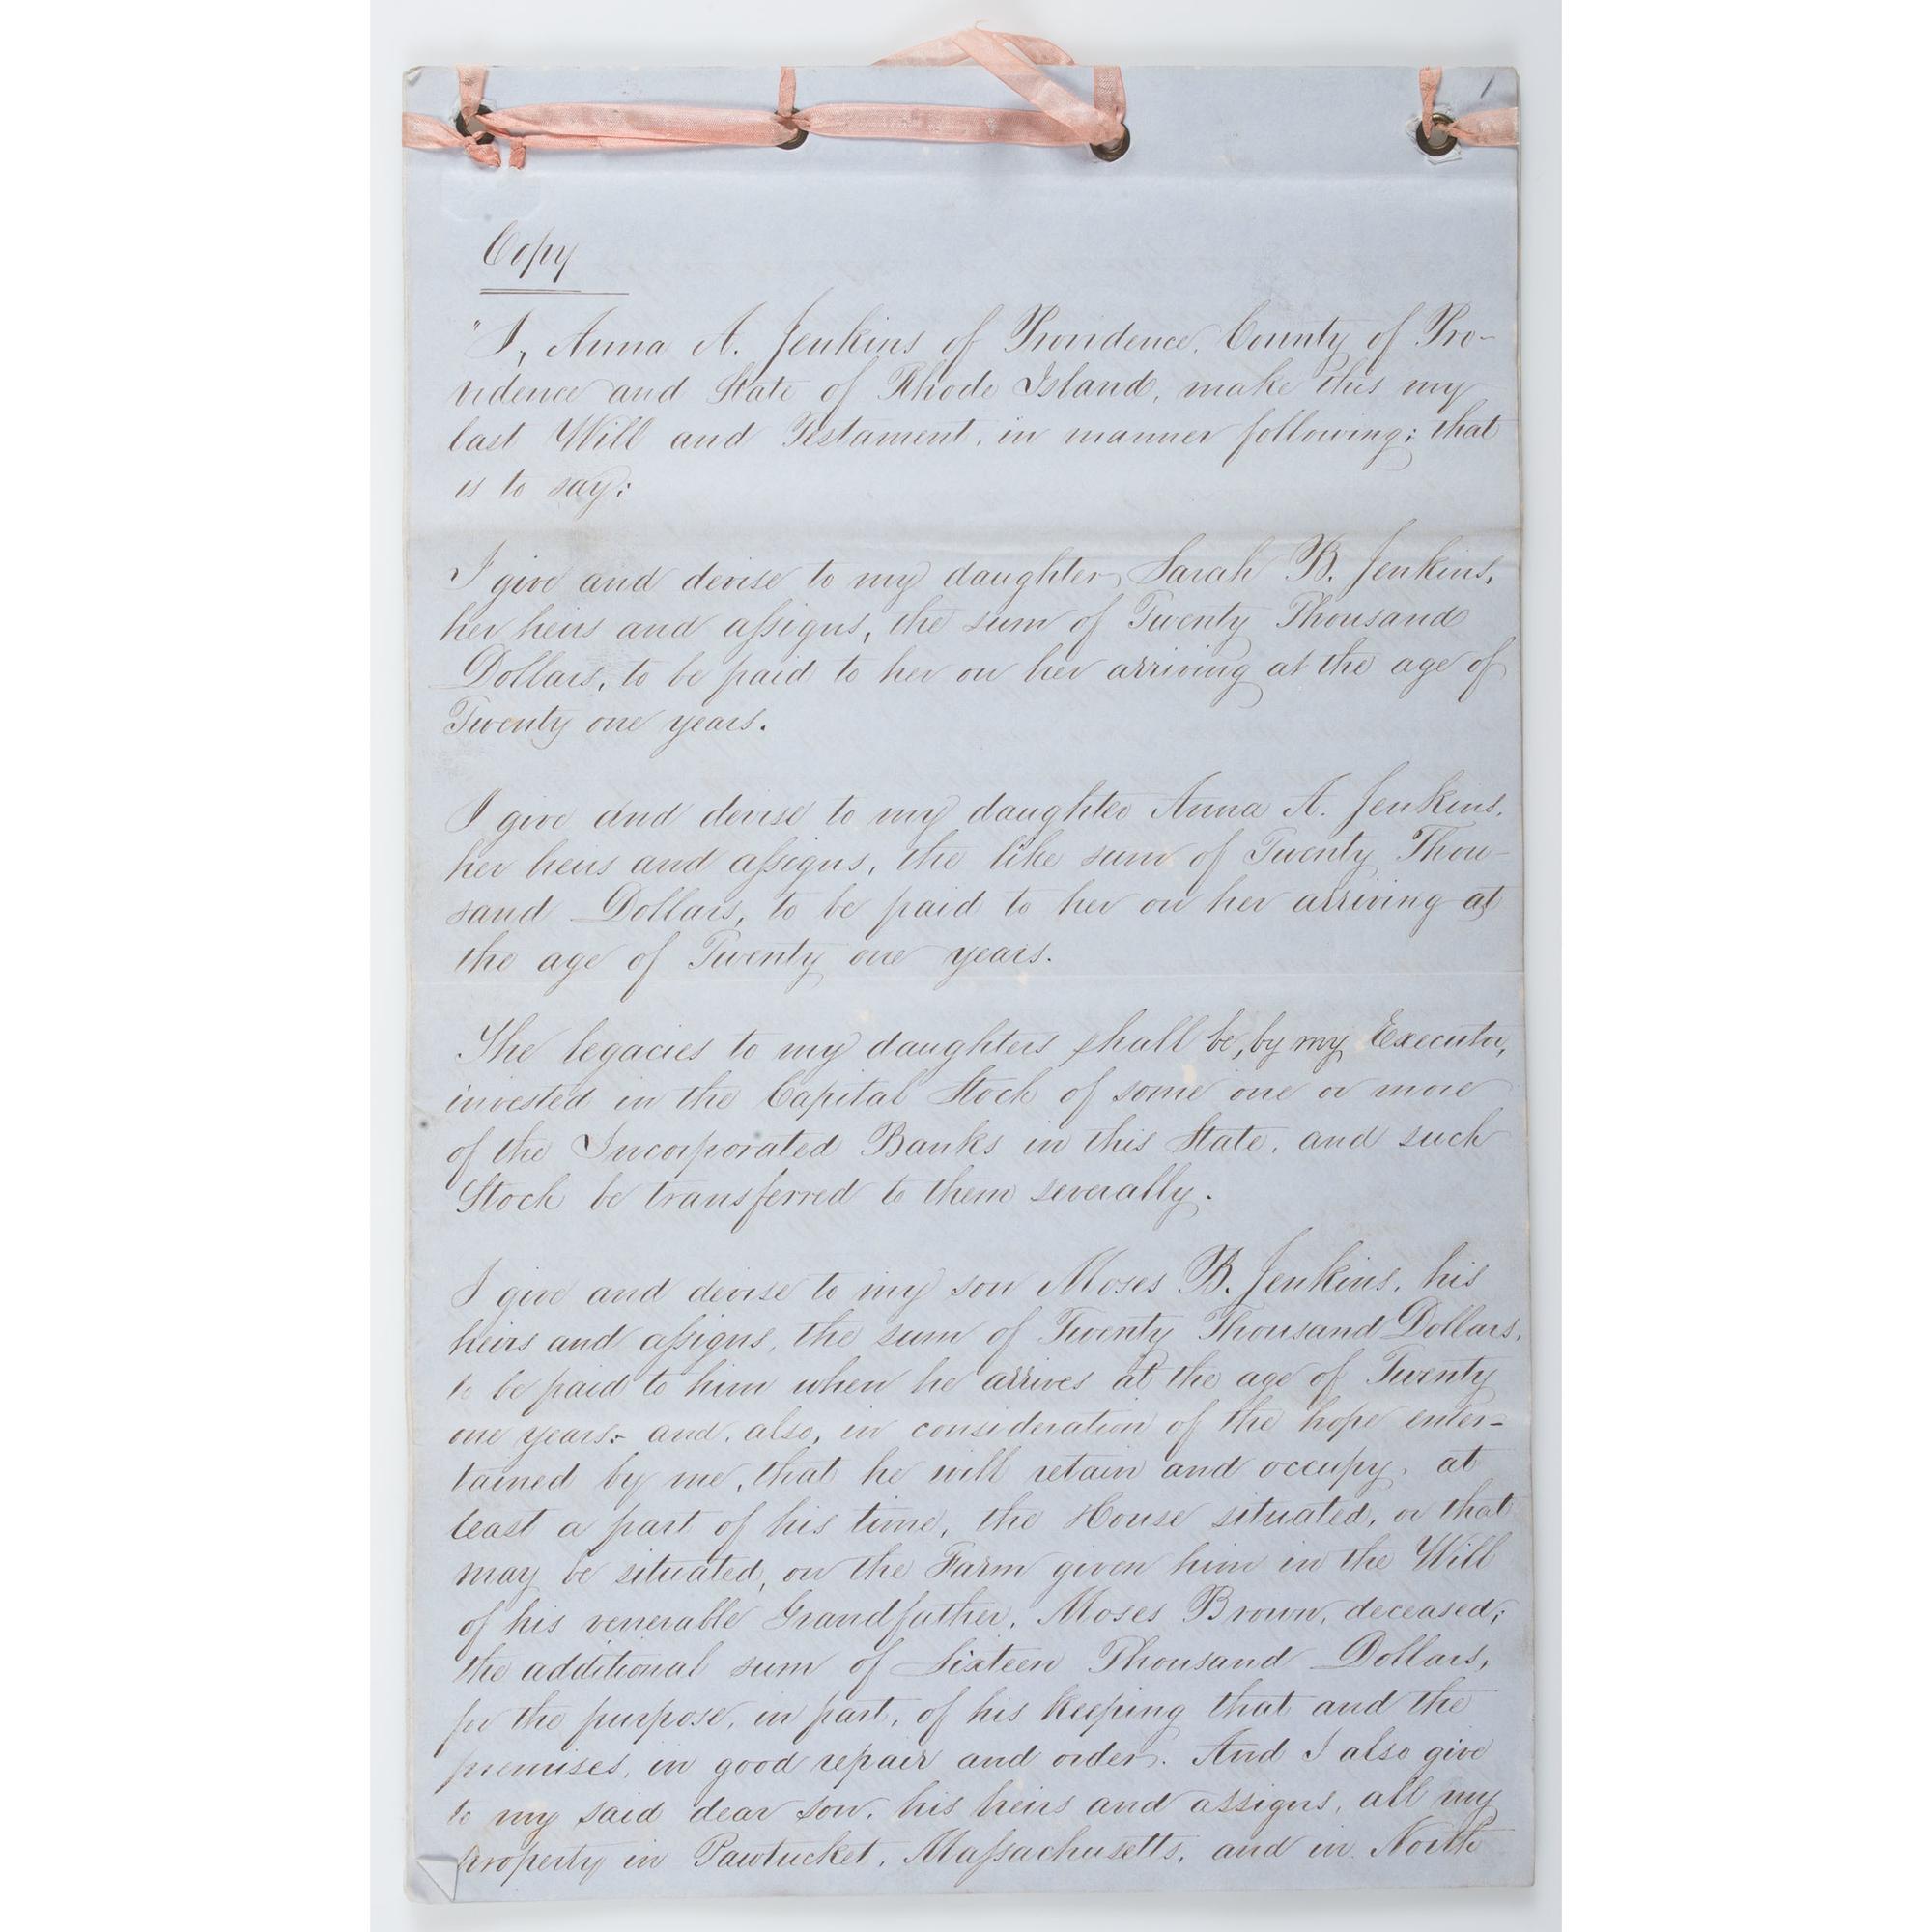 1
Copy
"I, Anna A. Jenkins of Providence, County of Pro-
vidence and State of Rhode Island, make this my
last Will and Testament, in manner following; that
is to say:
I give and devise to my daughter, Sarah B. Jenkins,
her heirs and aſsigns, the sum of Twenty Thousand
Dollars, to be paid to her on her arriving at the age of
Twenty one years.
I give and devise to my daughter Anna A. Jenkins,
her heirs and aſsigns, the like sum of Twenty Thou-
sand Dollars, to be paid to her on her arriving at
the age of Twenty one years.
The legacies to my daughters shall be, by my Executor,
invested in the Capital Stock of some one or more
of the Incorporated Banks in this State, and such
Stock be transferred to them severally.
I give and devise to my son Moses B. Jenkins, his
heirs and aſsigns, the sum of Twenty Thousand Dollars,
to be paid to him when he arrives at the age of Twenty
one years:- and, also, in consideration of the hope enter-
tained by me, that he will retain and occupy, at
least a part of his time, the House situated, or that
may be situated, on the Farm given him in the Will
of his venerable Grandfather, Moses Brown, deceased;
the additional sum of Sixteen Thousand Dollars,
for the purpose, in part, of his keeping that and the
premises, in good repair and order. And I also give
to my said dear son, his heirs and assigns, all my
property in Pawtucket, Maſsachusetts, and in North